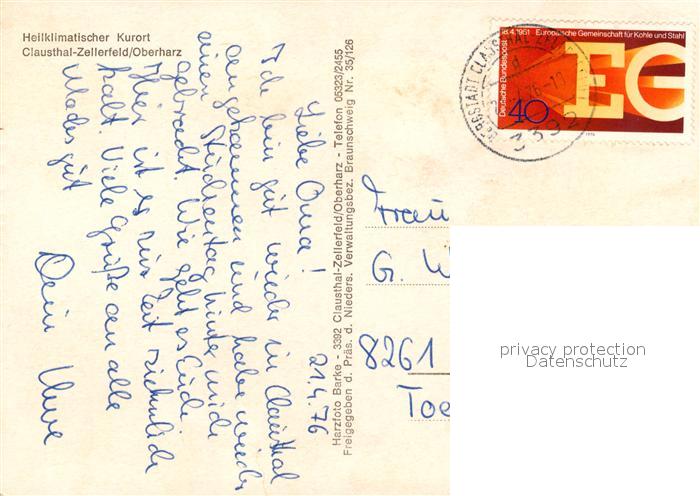 Heilklimatischer Kurort
Clausthal-Zellerfeld/Oberharz
21.4.76
Liebe Oma!
Ich bin gut wieder in Clausthal
angekommen und habe wieder
einen Studientag hinter mich
gebracht. Wie geht es Euch
Hier ist es zur Zeit ziemlich
kalt. Viele Grüße an alle
Machs gut
Dein Uwe
Harzfoto Barke - 3392 Clausthal-Zellerfeld/Oberharz - Telefon 05323/2455
Freigegeben d. Präs. d. Nieders. Verwaltungsbez. Braunschweig Nr. 35/126
18.4.1951 Europäische Gemeinschaft für Kohle und Stahl
Deutsche Bundespost
40
EG
1976
BERGSTADT CLAUSTHAL-ZELLERFELD
3392
Frau
G. W
8261
Toe
privacy protection
Datenschutz